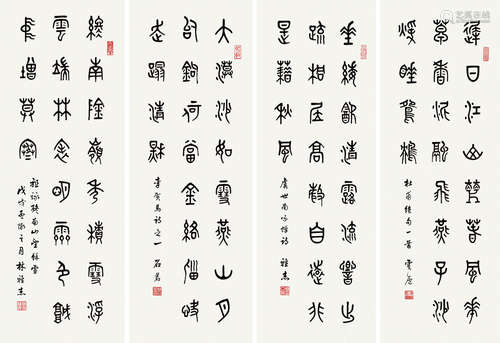 遲日江山麗春風華
草香泥融飛燕子沙
煖睡鴛鴦
杜甫絕句一首
垂緌飲清露流響出
疏桐居高聲自遠非
是藉秋風
虞世南詠蟬詩
大漠沙如雪燕山月
鉤何當金絡腦快
走蹋清秋
李賀馬詩之一
終南陰嶺秀積雪浮
雲端林表明霽色城
中增莫寒
祖詠終南山望餘雪